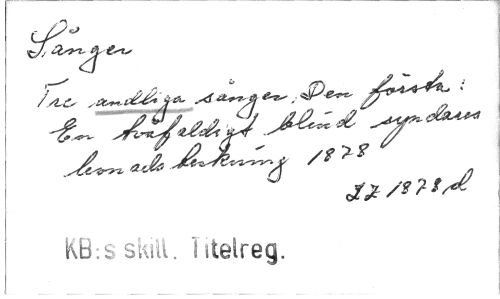 Sånger
Tre andliga sånger. Den första:
En tvåfaldigt blind syndares
levnadsbeskrivning 1878
ZZ 1878 d
KB:s skill. Titelreg.